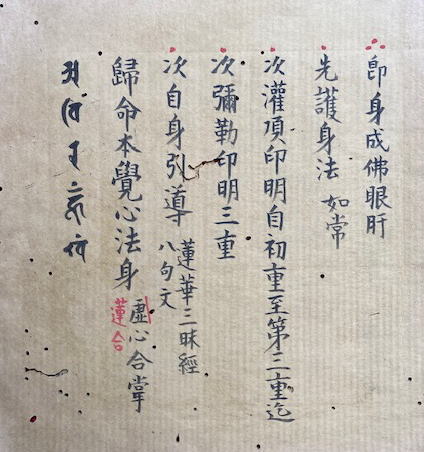 即身成佛眼肝
先護身法 如常
次灌頂印明自初重至第三重迄
次彌勒印明三重
次自身引導 蓮華三昧經
八句文
歸命本覺心法身 虛心合掌
蓮合